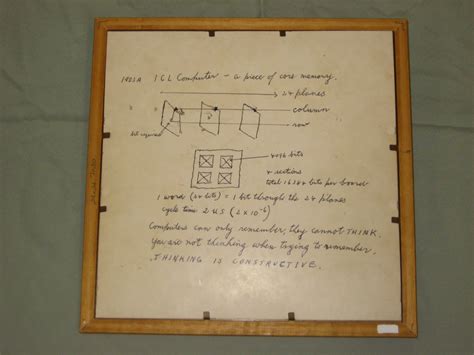 ICL Computer - a piece of core memory.
24 planes
column
row
bit required
4096 bits
4 sections
total 16384 bits per board
1 word (24 bits) = 1 bit through the 24 planes
cycle time 2 µs (2 x 10⁻⁶)
Computers can only remember, they cannot THINK.
You are not thinking when trying to remember,
THINKING IS CONSTRUCTIVE.